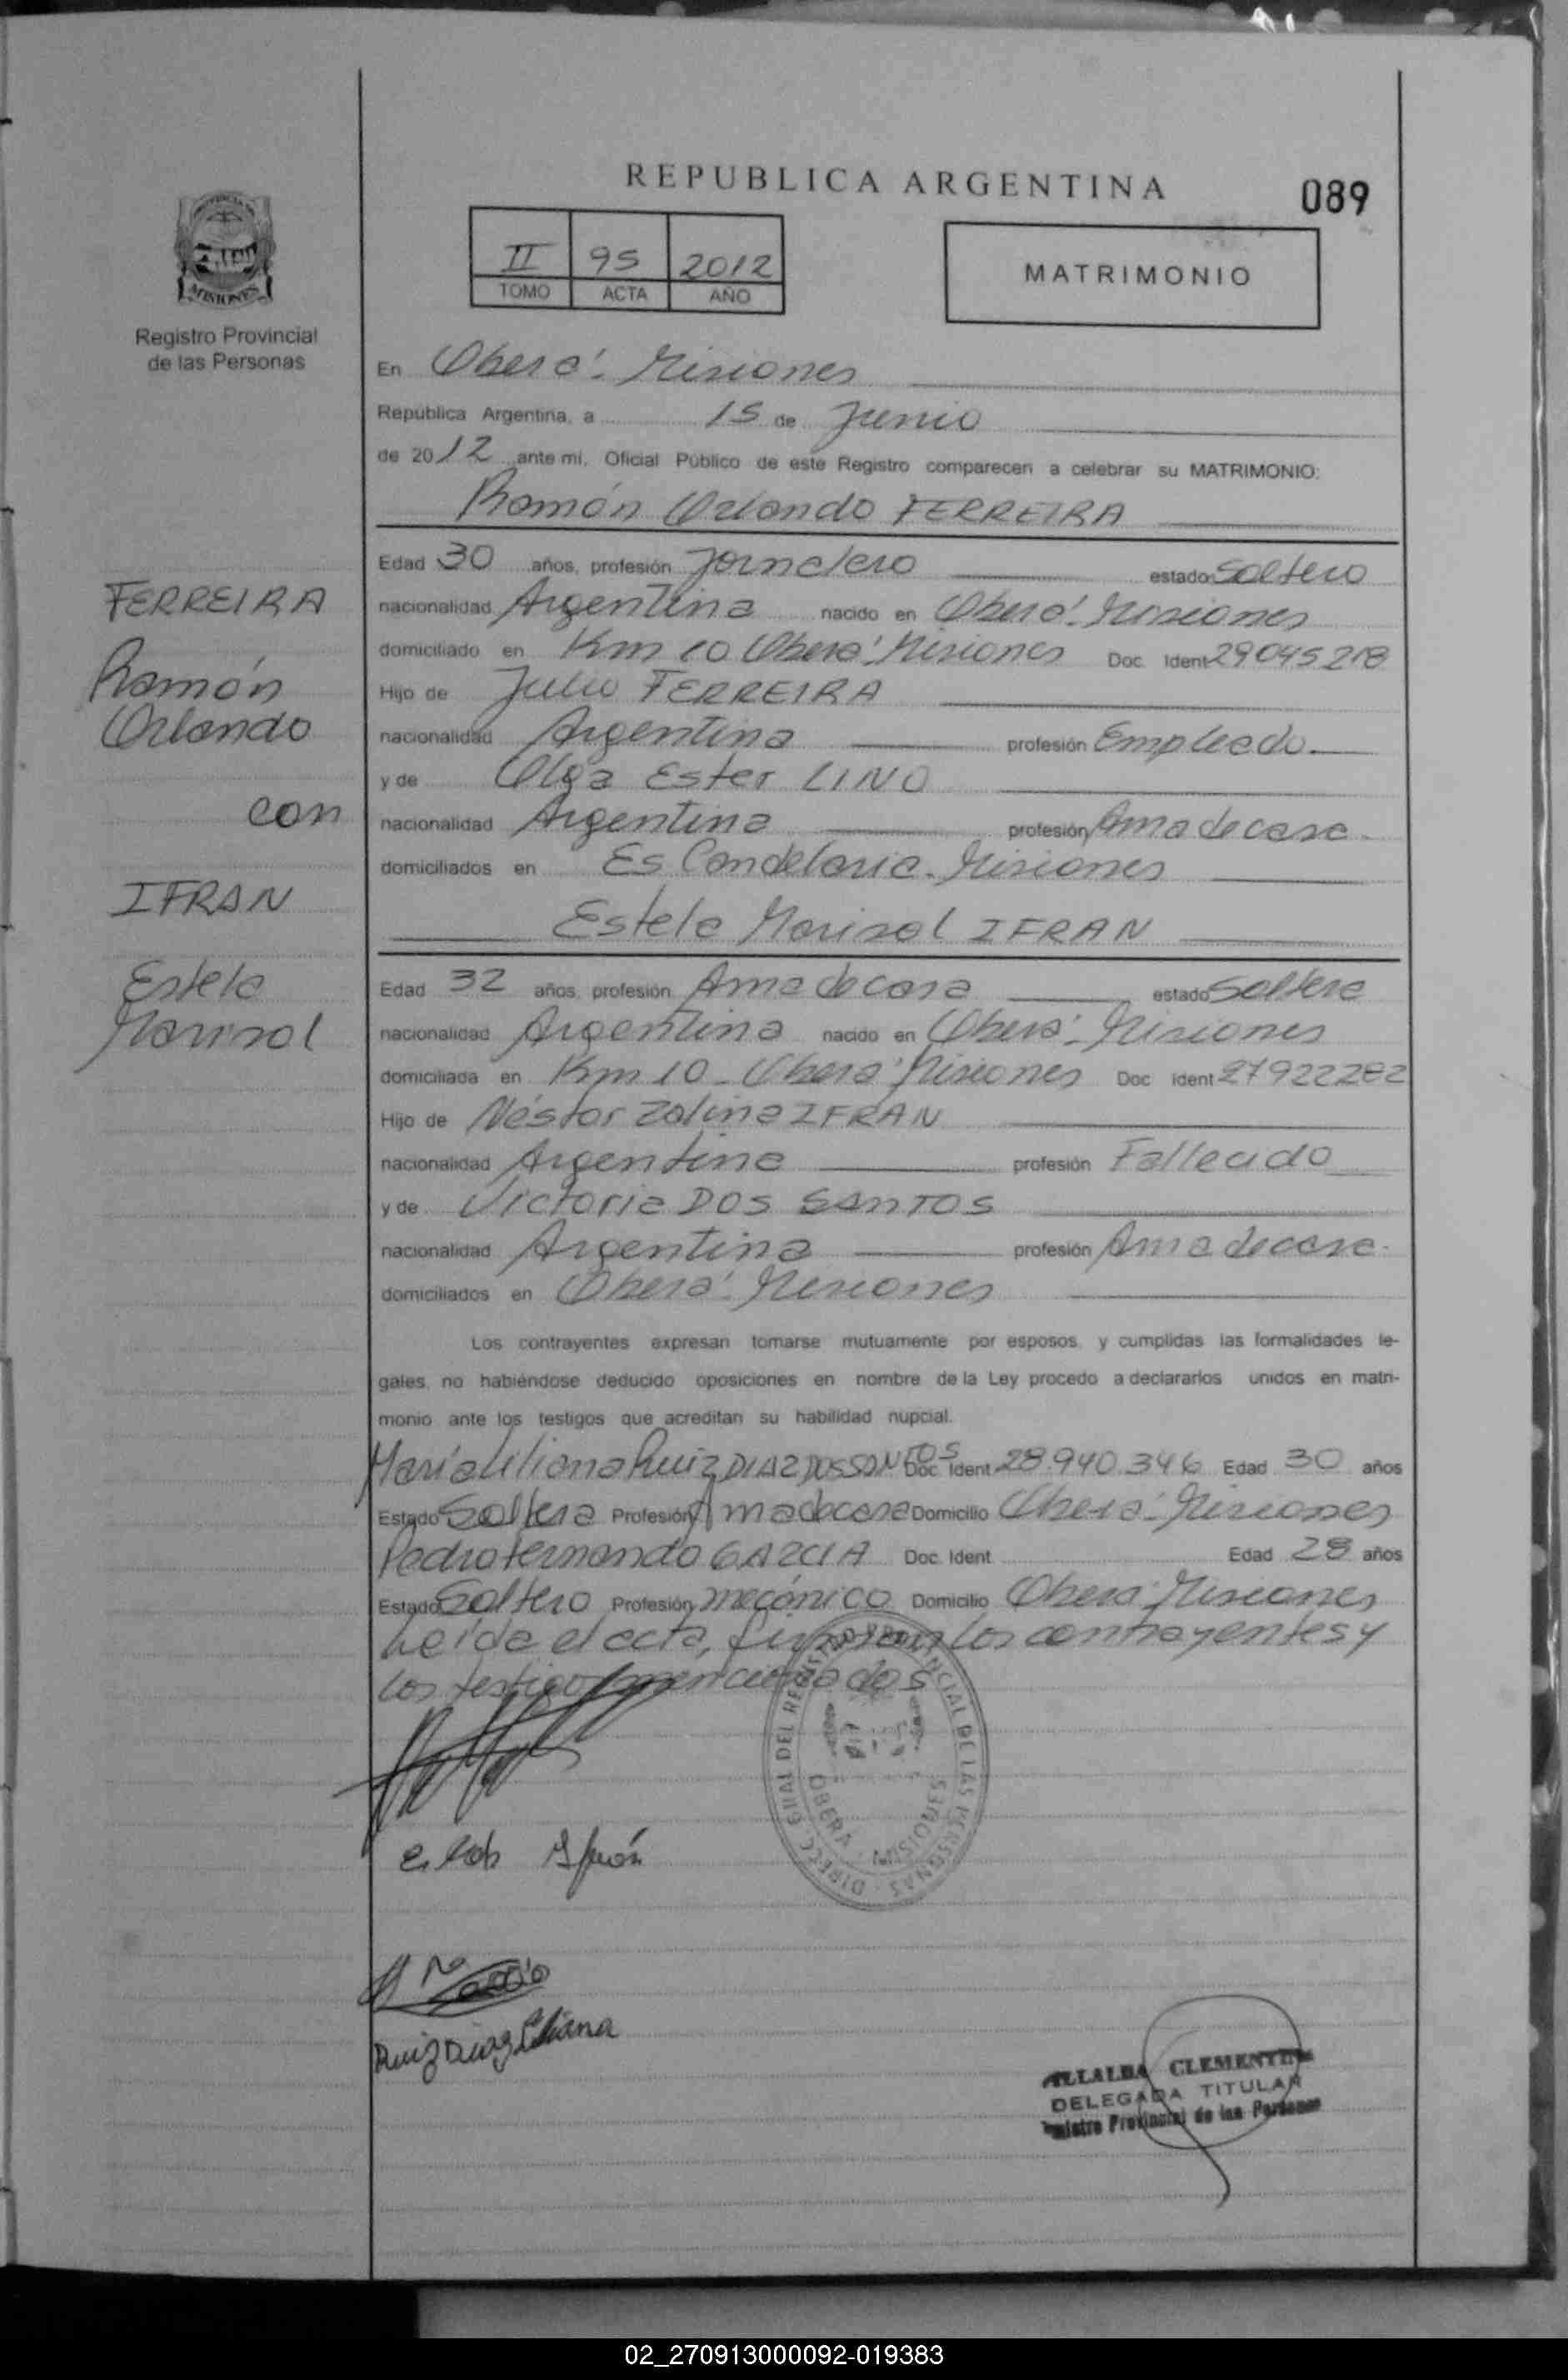 REPUBLICA ARGENTINA
089
II 95 2012
TOMO ACTA AÑO
MATRIMONIO
MISIONES
Registro Provincial
de las Personas
En Oberá - Misiones
República Argentina, a 15 de Junio
de 2012 ante mi, Oficial Público de este Registro comparecen a celebrar su MATRIMONIO:
Ramón Orlando FERREIRA
Edad 30 años, profesión Jornalero estado Soltero
nacionalidad Argentina nacido en Oberá - Misiones
domiciliado en Km 10 Oberá Misiones Doc. Ident 29045218
Hijo de Julio FERREIRA
nacionalidad Argentina profesión Empleado.
y de Olga Ester LINO
nacionalidad Argentina profesión Ama de casa.
domiciliados en Es Candelaria - Misiones
FERREIRA
Ramón
Orlando
con
IFRAN
Estela
Marisol
Estela Marisol IFRAN
Edad 32 años, profesión Ama de casa estado Soltera
nacionalidad Argentina nacido en Oberá - Misiones
domiciliada en Km 10 - Oberá Misiones Doc Ident 27922282
Hijo de Néstor IFRAN
nacionalidad Argentina profesión Fallecido
y de Victoria DOS SANTOS
nacionalidad Argentina profesión Ama de casa.
domiciliados en Oberá - Misiones
Los contrayentes expresan tomarse mutuamente por esposos, y cumplidas las formalidades le-
gales, no habiéndose deducido oposiciones en nombre de la Ley procedo a declararlos unidos en matri-
monio ante los testigos que acreditan su habilidad nupcial.
María Liliana Ruiz DIAZ DOS SANTOS Doc. Ident. 28.940.346 Edad 30 años
Estado Soltera Profesión Ama de casa Domicilio Oberá - Misiones
Pedro Fernando GARCIA Doc. Ident. Edad 28 años
Estado Soltero Profesión mecánico Domicilio Oberá - Misiones
Leída el acta, firman los contrayentes y
los testigos mencionados
DIRECC. GRAL DEL REGISTRO PROVINCIAL DE LAS PERSONAS
OBERA - MISIONES
Ifrán
Ruiz Diaz Liliana
VILLALBA CLEMENTE
DELEGADA TITULAR
Registro Provincial de las Personas
02_270913000092-019383